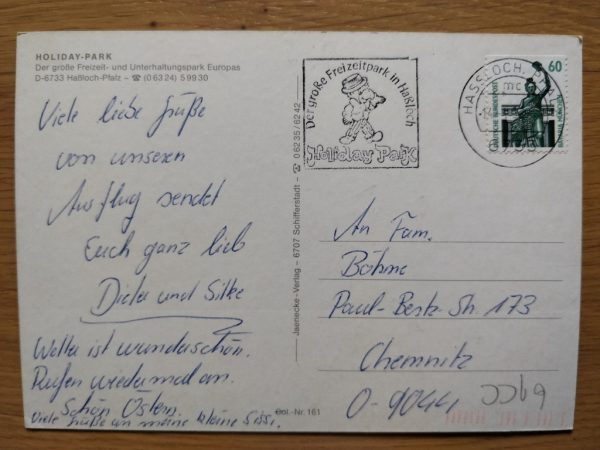 HOLIDAY-PARK
Der große Freizeit- und Unterhaltungspark Europas
D-6733 Haßloch-Pfalz – ☎ (0 63 24) 5 99 30
Viele liebe Grüße
von unserem
Ausflug sendet
Euch ganz lieb
Dieter und Silke
Wetter ist wunderschön.
Rufen wieder mal an.
Schön Ostern.
Viele Grüße an meine kleine Sissi.
Jaenecke-Verlag – 6707 Schifferstadt – ☎ 0 62 35 / 62 42
Col.-Nr. 161
Der große Freizeitpark in Haßloch
Holiday Park
HASSLOCH, PFALZ
mc
60
DEUTSCHE BUNDESPOST
An Fam.
Böhme
Paul-Bertz-Str. 173
Chemnitz
O-9044